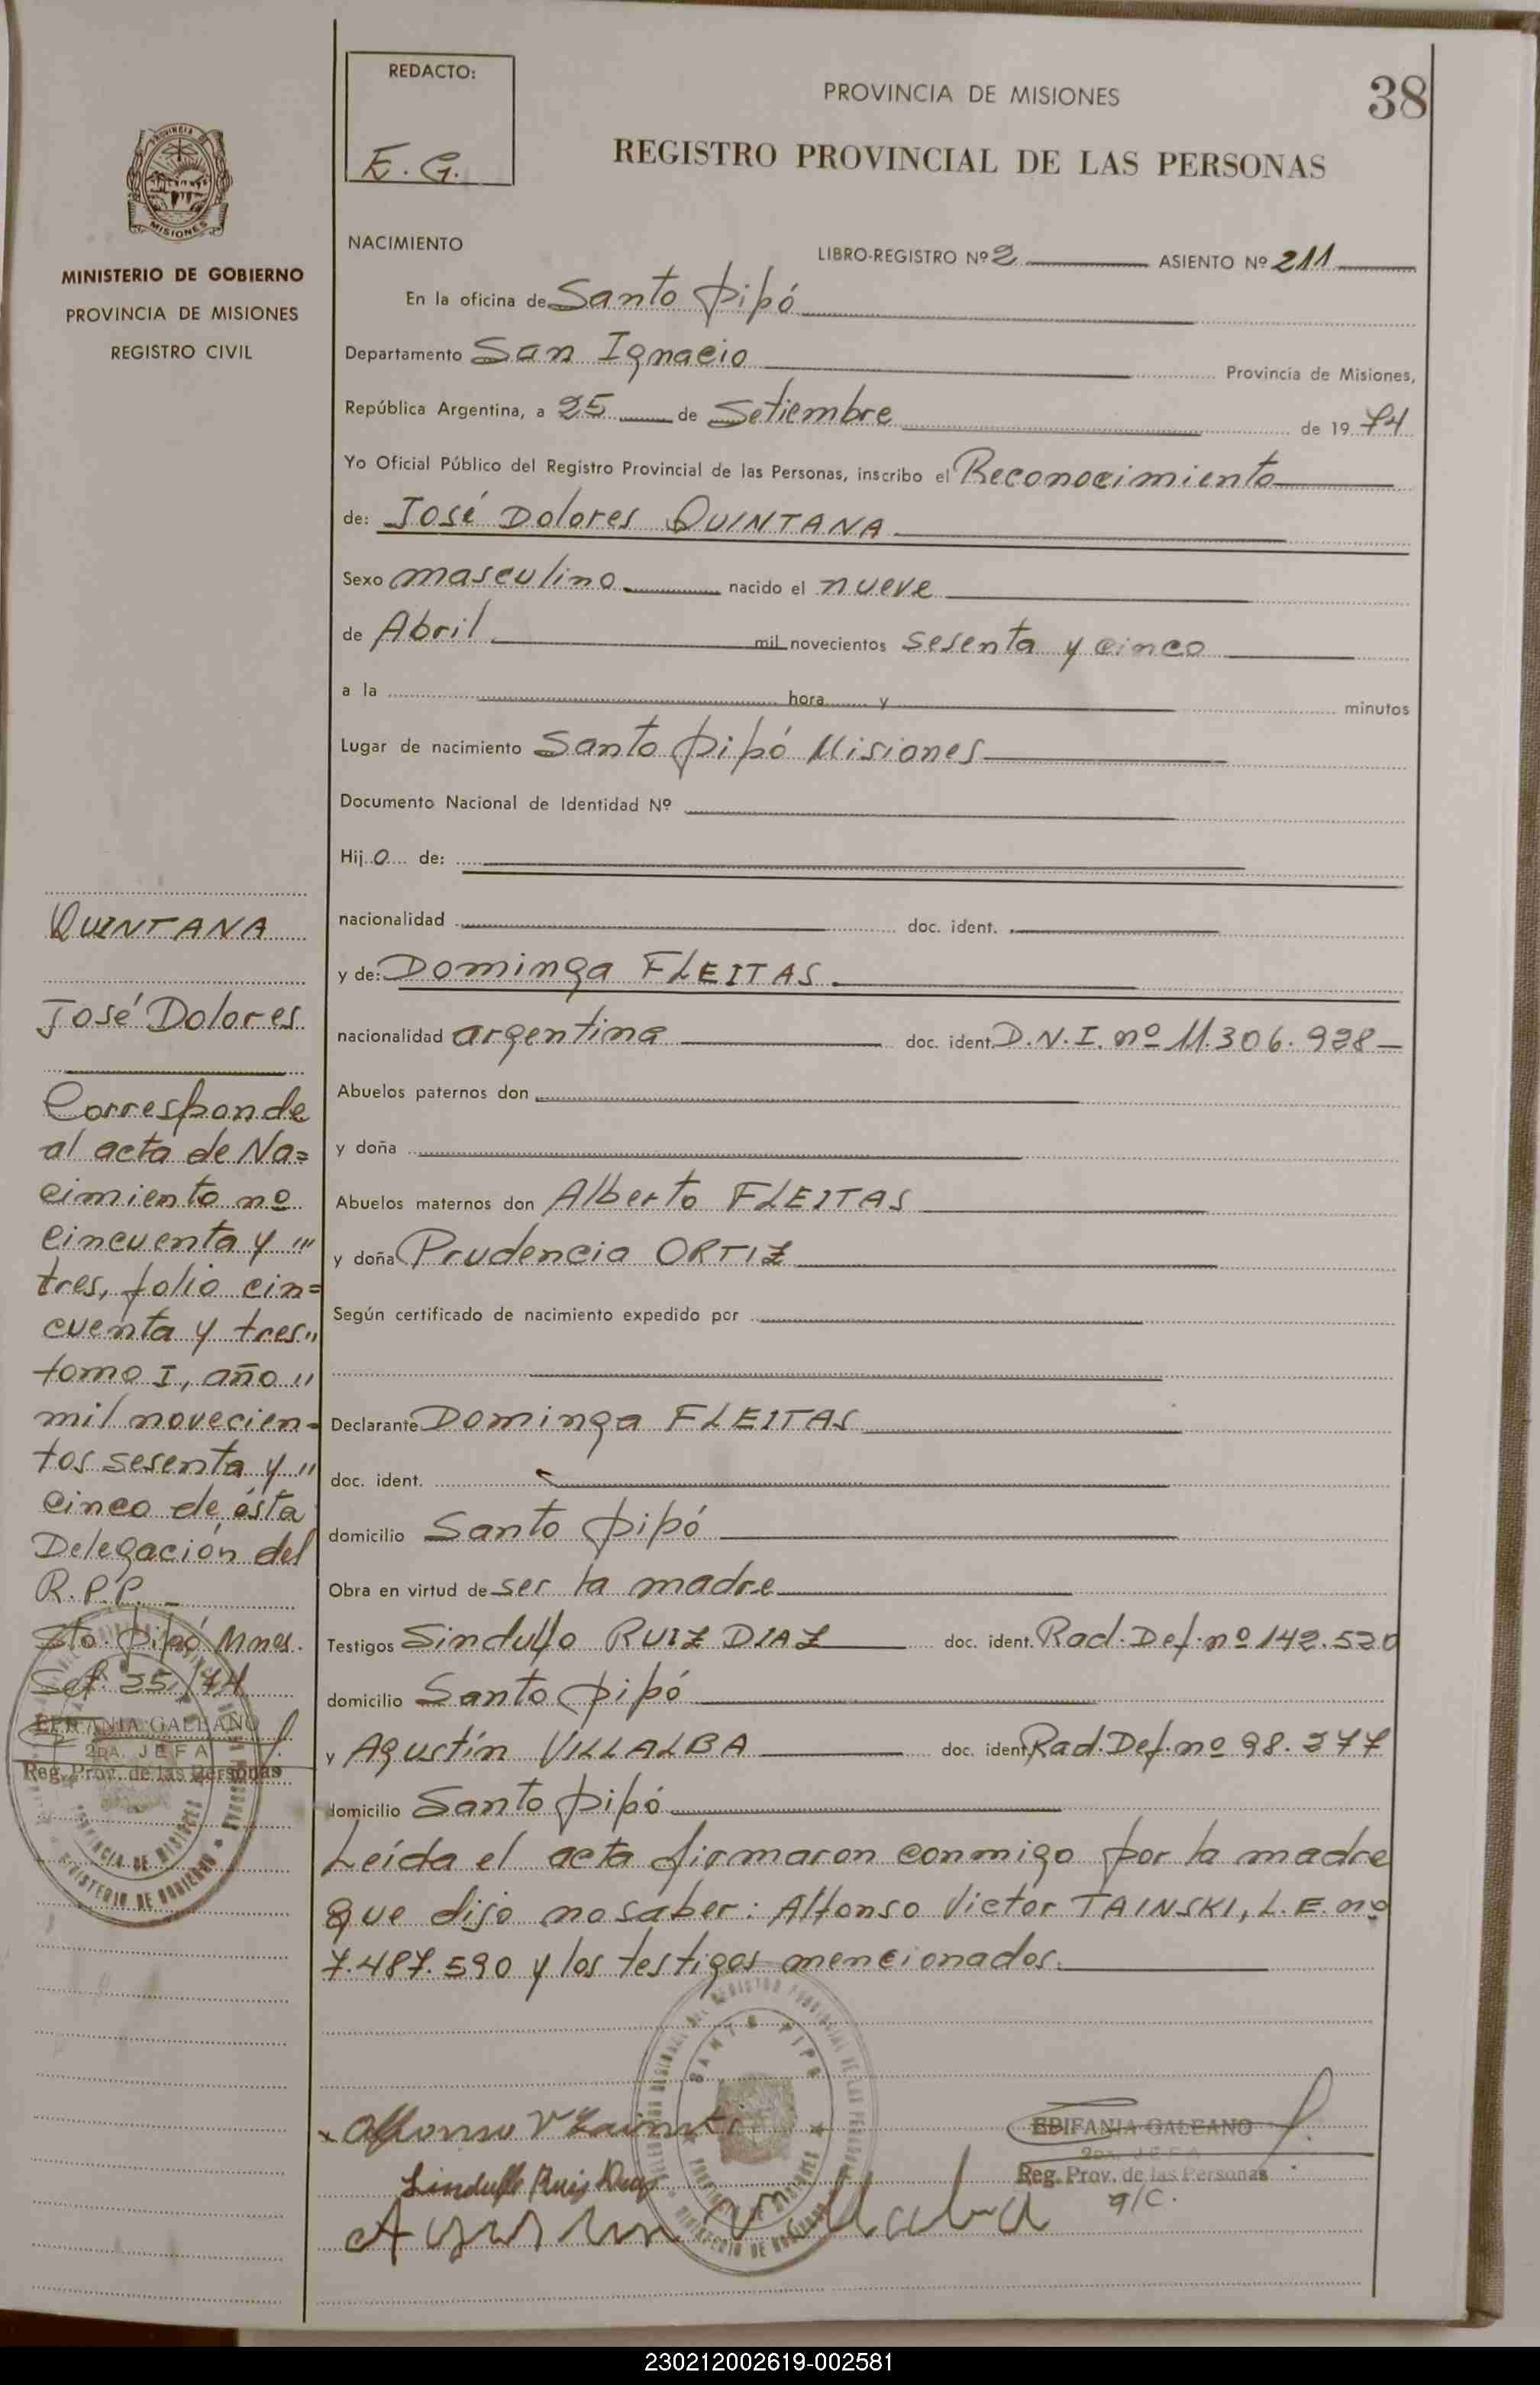 REDACTO:
E. G.
PROVINCIA DE MISIONES
38
REGISTRO PROVINCIAL DE LAS PERSONAS
PROVINCIA DE
MISIONES
MINISTERIO DE GOBIERNO
PROVINCIA DE MISIONES
REGISTRO CIVIL
NACIMIENTO
LIBRO-REGISTRO Nº 2 ASIENTO Nº 211
En la oficina de Santo Pipó
Departamento San Ignacio Provincia de Misiones,
República Argentina, a 25 de Setiembre de 19 74
Yo Oficial Público del Registro Provincial de las Personas, inscribo el Reconocimiento
de: José Dolores QUINTANA
Sexo masculino nacido el nueve
de Abril mil novecientos sesenta y cinco
a la hora y minutos
Lugar de nacimiento Santo Pipó Misiones
Documento Nacional de Identidad Nº
Hijo de:
nacionalidad doc. ident.
y de: Dominga FLEITAS
nacionalidad argentina doc. ident. D.N.I. nº 11.306.928
Abuelos paternos don
y doña
Abuelos maternos don Alberto FLEITAS
y doña Prudencia ORTIZ
Según certificado de nacimiento expedido por
Declarante Dominga FLEITAS
doc. ident.
domicilio Santo Pipó
Obra en virtud de ser la madre
Testigos Sindulfo RUIZ DIAZ doc. ident. Rad. Def. nº 142.520
domicilio Santo Pipó
y Agustín VILLALBA doc. ident. Rad. Def. nº 98.377
domicilio Santo Pipó
Leída el acta firmaron conmigo por la madre
que dijo no saber: Alfonso Victor TAINSKI, L.E. nº
7.487.590 y los testigos mencionados.
QUINTANA
José Dolores
Corresponde
al acta de Na=
cimiento nº
cincuenta y "
tres, folio cin=
cuenta y tres"
tomo I, año "
mil novecien=
tos sesenta y "
cinco de ésta
Delegación del
R.P.P. -
Sto. Pipó Mnes.
Set. 25/74
EPIFANIA GALEANO
2DA. JEFA
Reg. Prov. de las Personas
PROVINCIA DE MISIONES
MINISTERIO DE GOBIERNO
SANTO PIPO
PROVINCIA DE MISIONES
MINISTERIO DE GOBIERNO
Sindulfo Ruiz Diaz
Agustin Villalba
EPIFANIA GALEANO
2DA. JEFA
Reg. Prov. de las Personas
a/c.
230212002619-002581